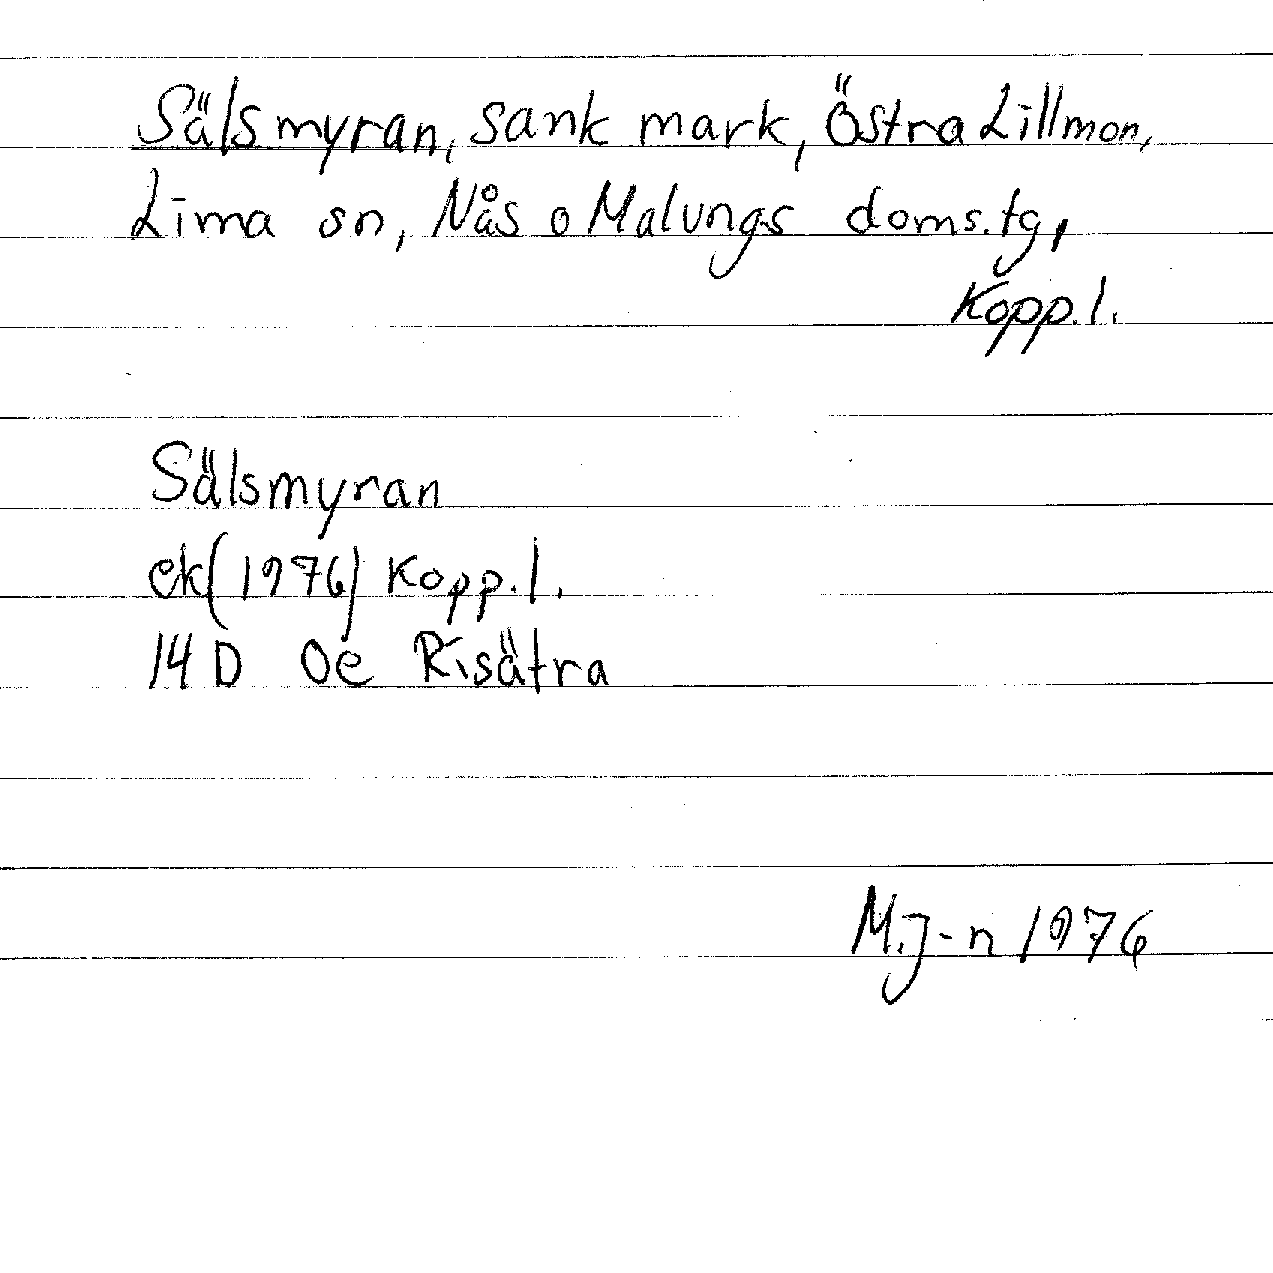 Sälsmyran, sank mark, Östra Lillmon,
Lima sn, Nås o Malungs doms.tg,
Kopp.l.
Sälsmyran
ek(1976) Kopp.l.
14 D 0e Risätra
M.J-n 1976